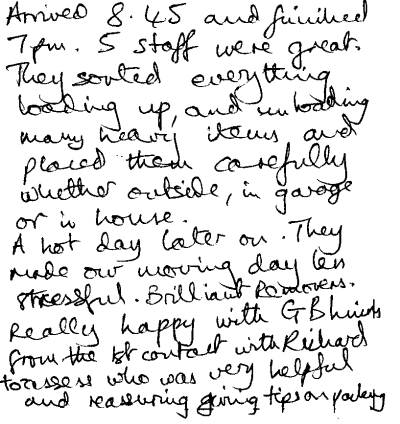 Arrived 8.45 and finished
7pm. 5 staff were great.
They sorted everything
loading up, and unloading
many heavy items and
placed them carefully
whether outside, in garage
or in house.
A hot day later on. They
made our moving day less
stressful. Brilliant Removers.
Really happy with GB
from the 1st contact with Richard
to assess who was very helpful
and reassuring giving tips on packing